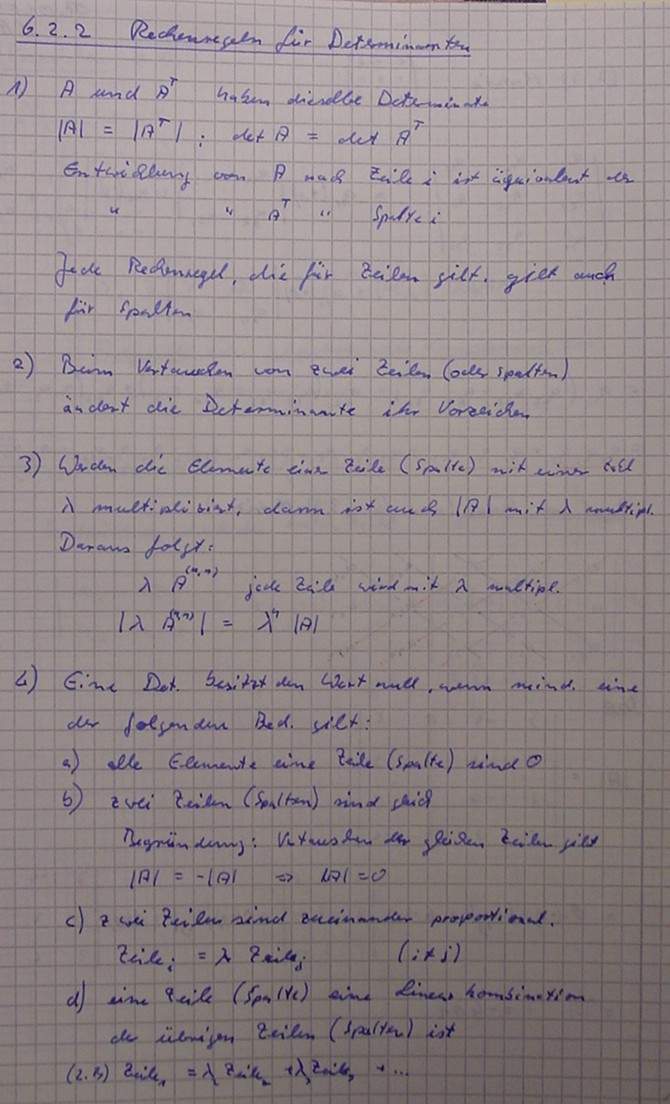 6.2.2 Rechenregeln für Determinanten
1) A und Aᵀ haben dieselbe Determinante
|A| = |Aᵀ| ; det A = det Aᵀ
Entwicklung von A nach Zeile i ist äquivalent der
" " Aᵀ " Spalte i
Jede Rechenregel, die für Zeilen gilt, gilt auch
für Spalten
2) Beim Vertauschen von zwei Zeilen (oder Spalten)
ändert die Determinante ihr Vorzeichen
3) Werden die Elemente einer Zeile (Spalte) mit einer Zahl
λ multipliziert, dann ist auch |A| mit λ multipl.
Daraus folgt:
λ A⁽ⁿ,ⁿ⁾ jede Zeile wird mit λ multipl.
|λ A⁽ⁿ,ⁿ⁾| = λⁿ |A|
4) Eine Det. besitzt den Wert null, wenn mind. eine
der folgenden Bed. gilt:
a) alle Elemente eine Zeile (Spalte) sind 0
b) zwei Zeilen (Spalten) sind gleich
Begründung: Vertauschen der gleichen Zeilen gilt
|A| = -|A| => |A| = 0
c) zwei Zeilen sind zueinander proportional.
Zeileᵢ = λ Zeileⱼ (i≠j)
d) eine Zeile (Spalte) eine Linearkombination
der übrigen Zeilen (Spalten) ist
(z.B) Zeile₁ = λ₂ Zeile₂ + λ₃ Zeile₃ + ...